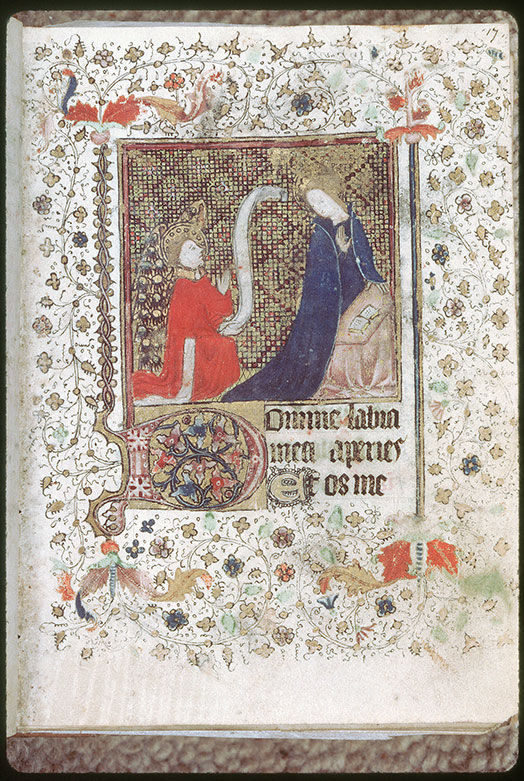 17
Domine labia
mea aperies
Et os me